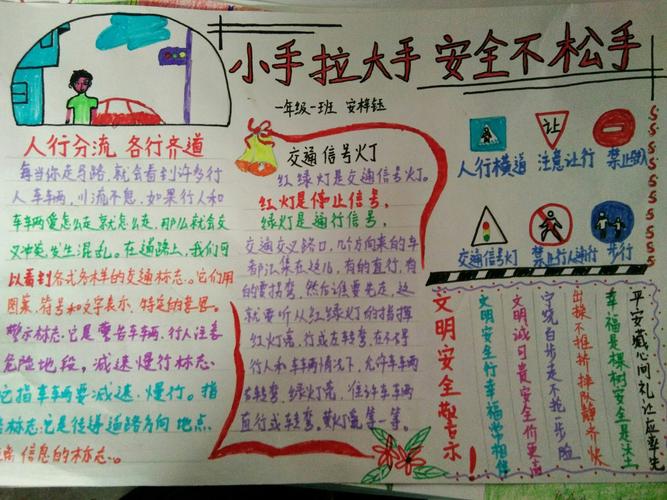 小手拉大手 安全不松手
一年级一班 安梓钰
人行分流 各行齐道
每当你走马路,就会看到许多行
人车车辆,川流不息,如果行人和
车车两爱怎么走就怎么走,那么就会交
叉冲突,发生混乱。在道路上,我们可
以看到各式各样的交通标志。它们用
图案,符号和文字表示,特定的意思。
警示标志:它是警告车车辆,行人注意
危险地段,减速慢行标志。
它指车车辆要减速,慢行。指
标志:它是传递道路方向地点
信息的标志。
交通信号灯
红绿灯是交通信号灯。
红灯是停止信号,
绿灯是通行信号,
交通交叉路口,几个方向来的车
都汇集在这儿,有的直行,有
的要拐弯,然后谁要先走,这
就要听从红绿灯的指挥
红灯亮,行或左转弯,在不碍
行人和车车辆情况下,允许车车辆
右转弯,绿灯亮,准许车车辆
直行或转弯。黄灯亮等一等。
让
人行横道 注意让行 禁止驶入
交通信号灯 禁止行人通行 步行
平安藏心间礼让应率先
幸福是棵树安全是沃土
出操不推挤排队静齐快
宁绕百步走不抢一步险
文明诚可贵安全价更高
文明安全行幸福常相伴
文明安全警示!